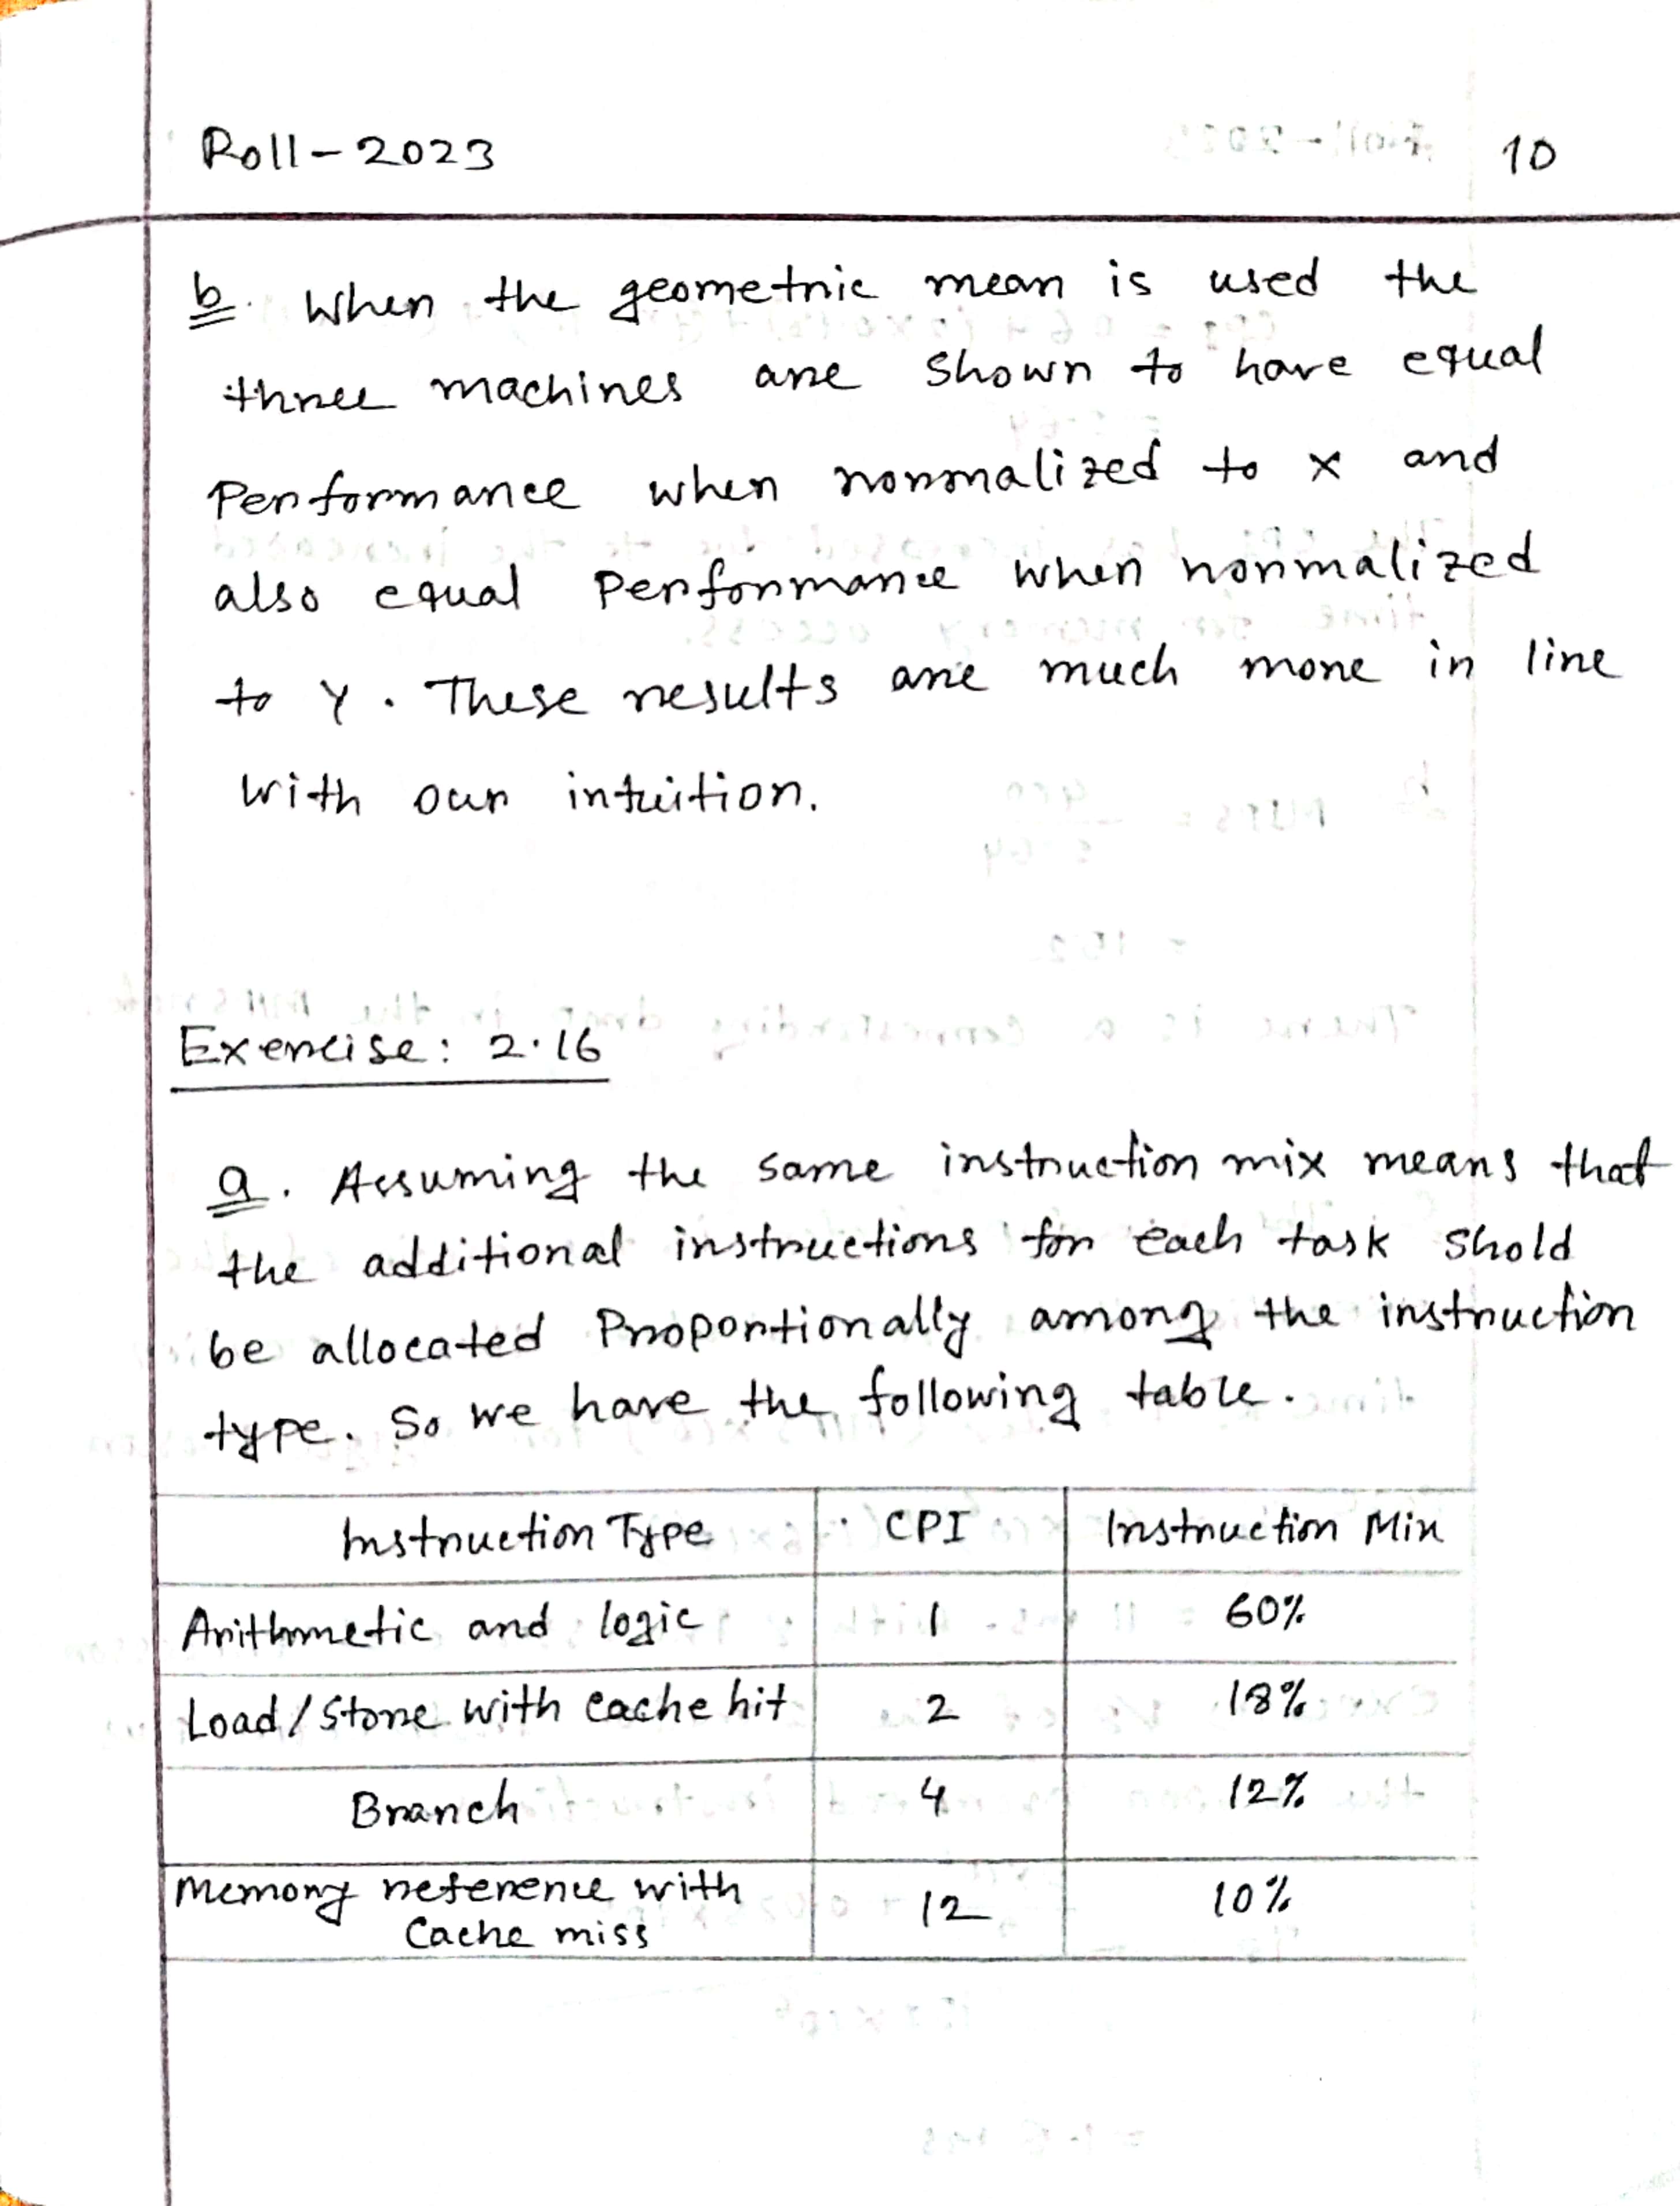 Roll-2023
10
b. When the geometric mean is used the
three machines are shown to have equal
Performance when normalized to x and
also equal Performance when normalized
to Y. These results are much more in line
with our intuition.
Exercise: 2.16
a. Assuming the same instruction mix means that
the additional instructions for each task shold
be allocated Proportionally among the instruction
type. So we have the following table.
Instruction Type | CPI | Instruction Mix
Arithmetic and logic | 1 | 60%
Load/Store with cache hit | 2 | 18%
Branch | 4 | 12%
Memory reference with
Cache miss | 12 | 10%